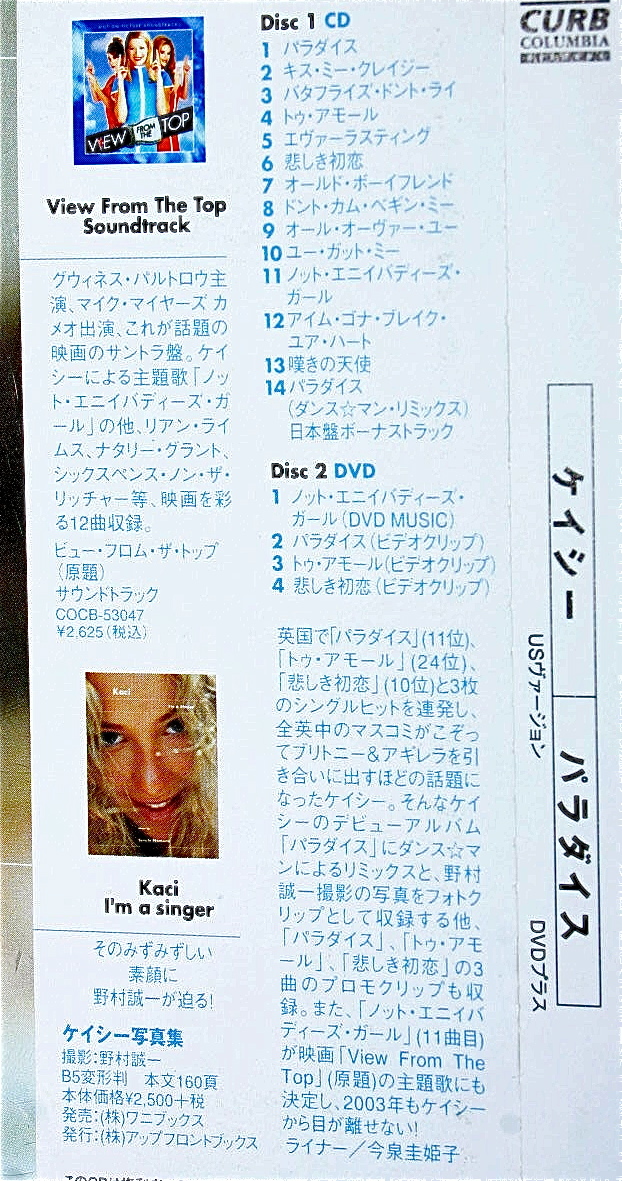 MOTION PICTURE SOUNDTRACK
VIEW FROM THE TOP
View From The Top
Soundtrack
グウィネス・パルトロウ主
演、マイク・マイヤーズ カ
メオ出演、これが話題の
映画のサントラ盤。ケイ
シーによる主題歌「ノッ
ト・エニイバディーズ・ガ
ール」の他、リアン・ライ
ムス、ナタリー・グラント、
シックスペンス・ノン・ザ・
リッチャー等、映画を彩
る12曲収録。
ビュー・フロム・ザ・トップ
(原題)
サウンドトラック
COCB-53047
¥2,625(税込)
Kaci
I'm a Singer
Kaci
I'm a singer
そのみずみずしい
素顔に
野村誠一が迫る!
ケイシー写真集
撮影:野村誠一
B5変形判 本文160頁
本体価格¥2,500+税
発売:(株)ワニブックス
発行:(株)アップフロントブックス
Disc 1 CD
1 パラダイス
2 キス・ミー・クレイジー
3 バタフライズ・ドント・ライ
4 トゥ・アモール
5 エヴァーラスティング
6 悲しき初恋
7 オールド・ボーイフレンド
8 ドント・カム・ベギン・ミー
9 オール・オーヴァー・ユー
10 ユー・ガット・ミー
11 ノット・エニイバディーズ・
ガール
12 アイム・ゴナ・ブレイク・
ユア・ハート
13 嘆きの天使
14 パラダイス
(ダンス☆マン・リミックス)
日本盤ボーナストラック
Disc 2 DVD
1 ノット・エニイバディーズ・
ガール(DVD MUSIC)
2 パラダイス(ビデオクリップ)
3 トゥ・アモール(ビデオクリップ)
4 悲しき初恋(ビデオクリップ)
英国で「パラダイス」(11位)、
「トゥ・アモール」(24位)、
「悲しき初恋」(10位)と3枚
のシングルヒットを連発し、
全英中のマスコミがこぞっ
てブリトニー&アギレラを引
き合いに出すほどの話題に
なったケイシー。そんなケイ
シーのデビューアルバム
「パラダイス」にダンス☆マ
ンによるリミックスと、野村
誠一撮影の写真をフォトク
リップとして収録する他、
「パラダイス」、「トゥ・アモ
ール」、「悲しき初恋」の3
曲のプロモクリップも収
録。また、「ノット・エニイバ
ディーズ・ガール」(11曲目)
が映画「View From The
Top」(原題)の主題歌にも
決定し、2003年もケイシー
から目が離せない!
ライナー/今泉圭姫子
CURB
COLUMBIA
ケイシー
パラダイス
USヴァージョン
DVDプラス